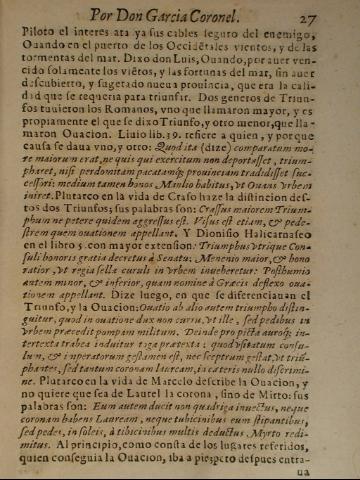 Por Don Garcia Coronel. 27
Piloto el interes ata ya sus cables seguro del enemigo,
Ouando en el puerto de los Occidētales vientos, y de las
tormentas del mar. Dixo don Luis, Ouando, por auer ven-
cido solamente los viētos, y las fortunas del mar, sin auer
descubierto, y sugetado nueua prouincia, que era la cali-
dad que se requeria para triunfar. Dos generos de Triun-
fos tuuieron los Romanos, vno que llamaron mayor, y es
propiamente el que se dixo Triunfo, y otro menor, que lla-
maron Ouacion. Liuio lib. 39. refiere a quien, y porque
causa se daua vno, y otro: Quod ita (dize) comparatum mo-
re maiorum erat, ne quis qui exercitum non deportasset, trium-
pharet, nisi perdomitam pacatamq; prouinciam tradidisset suc-
cessori: medium tamen honos Manlio habitus, vt Ouans Vrbem
iniret. Plutarco en la vida de Craso haze la distincion des-
tos dos Triunfos; sus palabras son: Crassus maiorem Trium-
phum ne petere quidem aggressus est. Visus est etiam, & pede-
strem quem ouationem appellant. Y Dionisio Halicarnaseo
en el libro 5. con mayor extension: Triumphus vtrique Con-
suli honoris gratia decretus à Senatu: Menenio maior, & hono
ratior, vt regia sella curuli in vrbem inueheretur: Posthumio
autem minor, & inferior, quam nomine à Græcis deflexo oua-
tionem appellant. Dize luego, en que se diferenciauan el
Triunfo, y la Ouacion: Ouatio ab alio autem triumpho distin-
guitur, quod in ouatione dux non curru, vt ille, sed pedibus in
vrbem præcedit pompam militum. Deinde pro picta auroq; in-
tertexta trabea induitur toga prætexta: quod vsitatum consu-
lum, & imperatorum gestamen est, nec sceptrum gestat, vt triū-
phantes, sed tantum coronam lauream, in cateris nullo discrimi-
ne. Plutarco en la vida de Marcelo describe la Ouacion, y
no quiere que sea de Laurel la corona, sino de Mirto: sus
palabras son: Eum autem ducit non quadriga inuectus, neque
coronam habens Lauream, neque tubicinibus eum stipantibus,
sed pedes, in soleis, à tibicinibus multis deductus, Myrto redi-
mitus. Al principio, como consta de los lugares referidos,
quien conseguia la Ouacion, iba a pie; pero despues entra-
ua